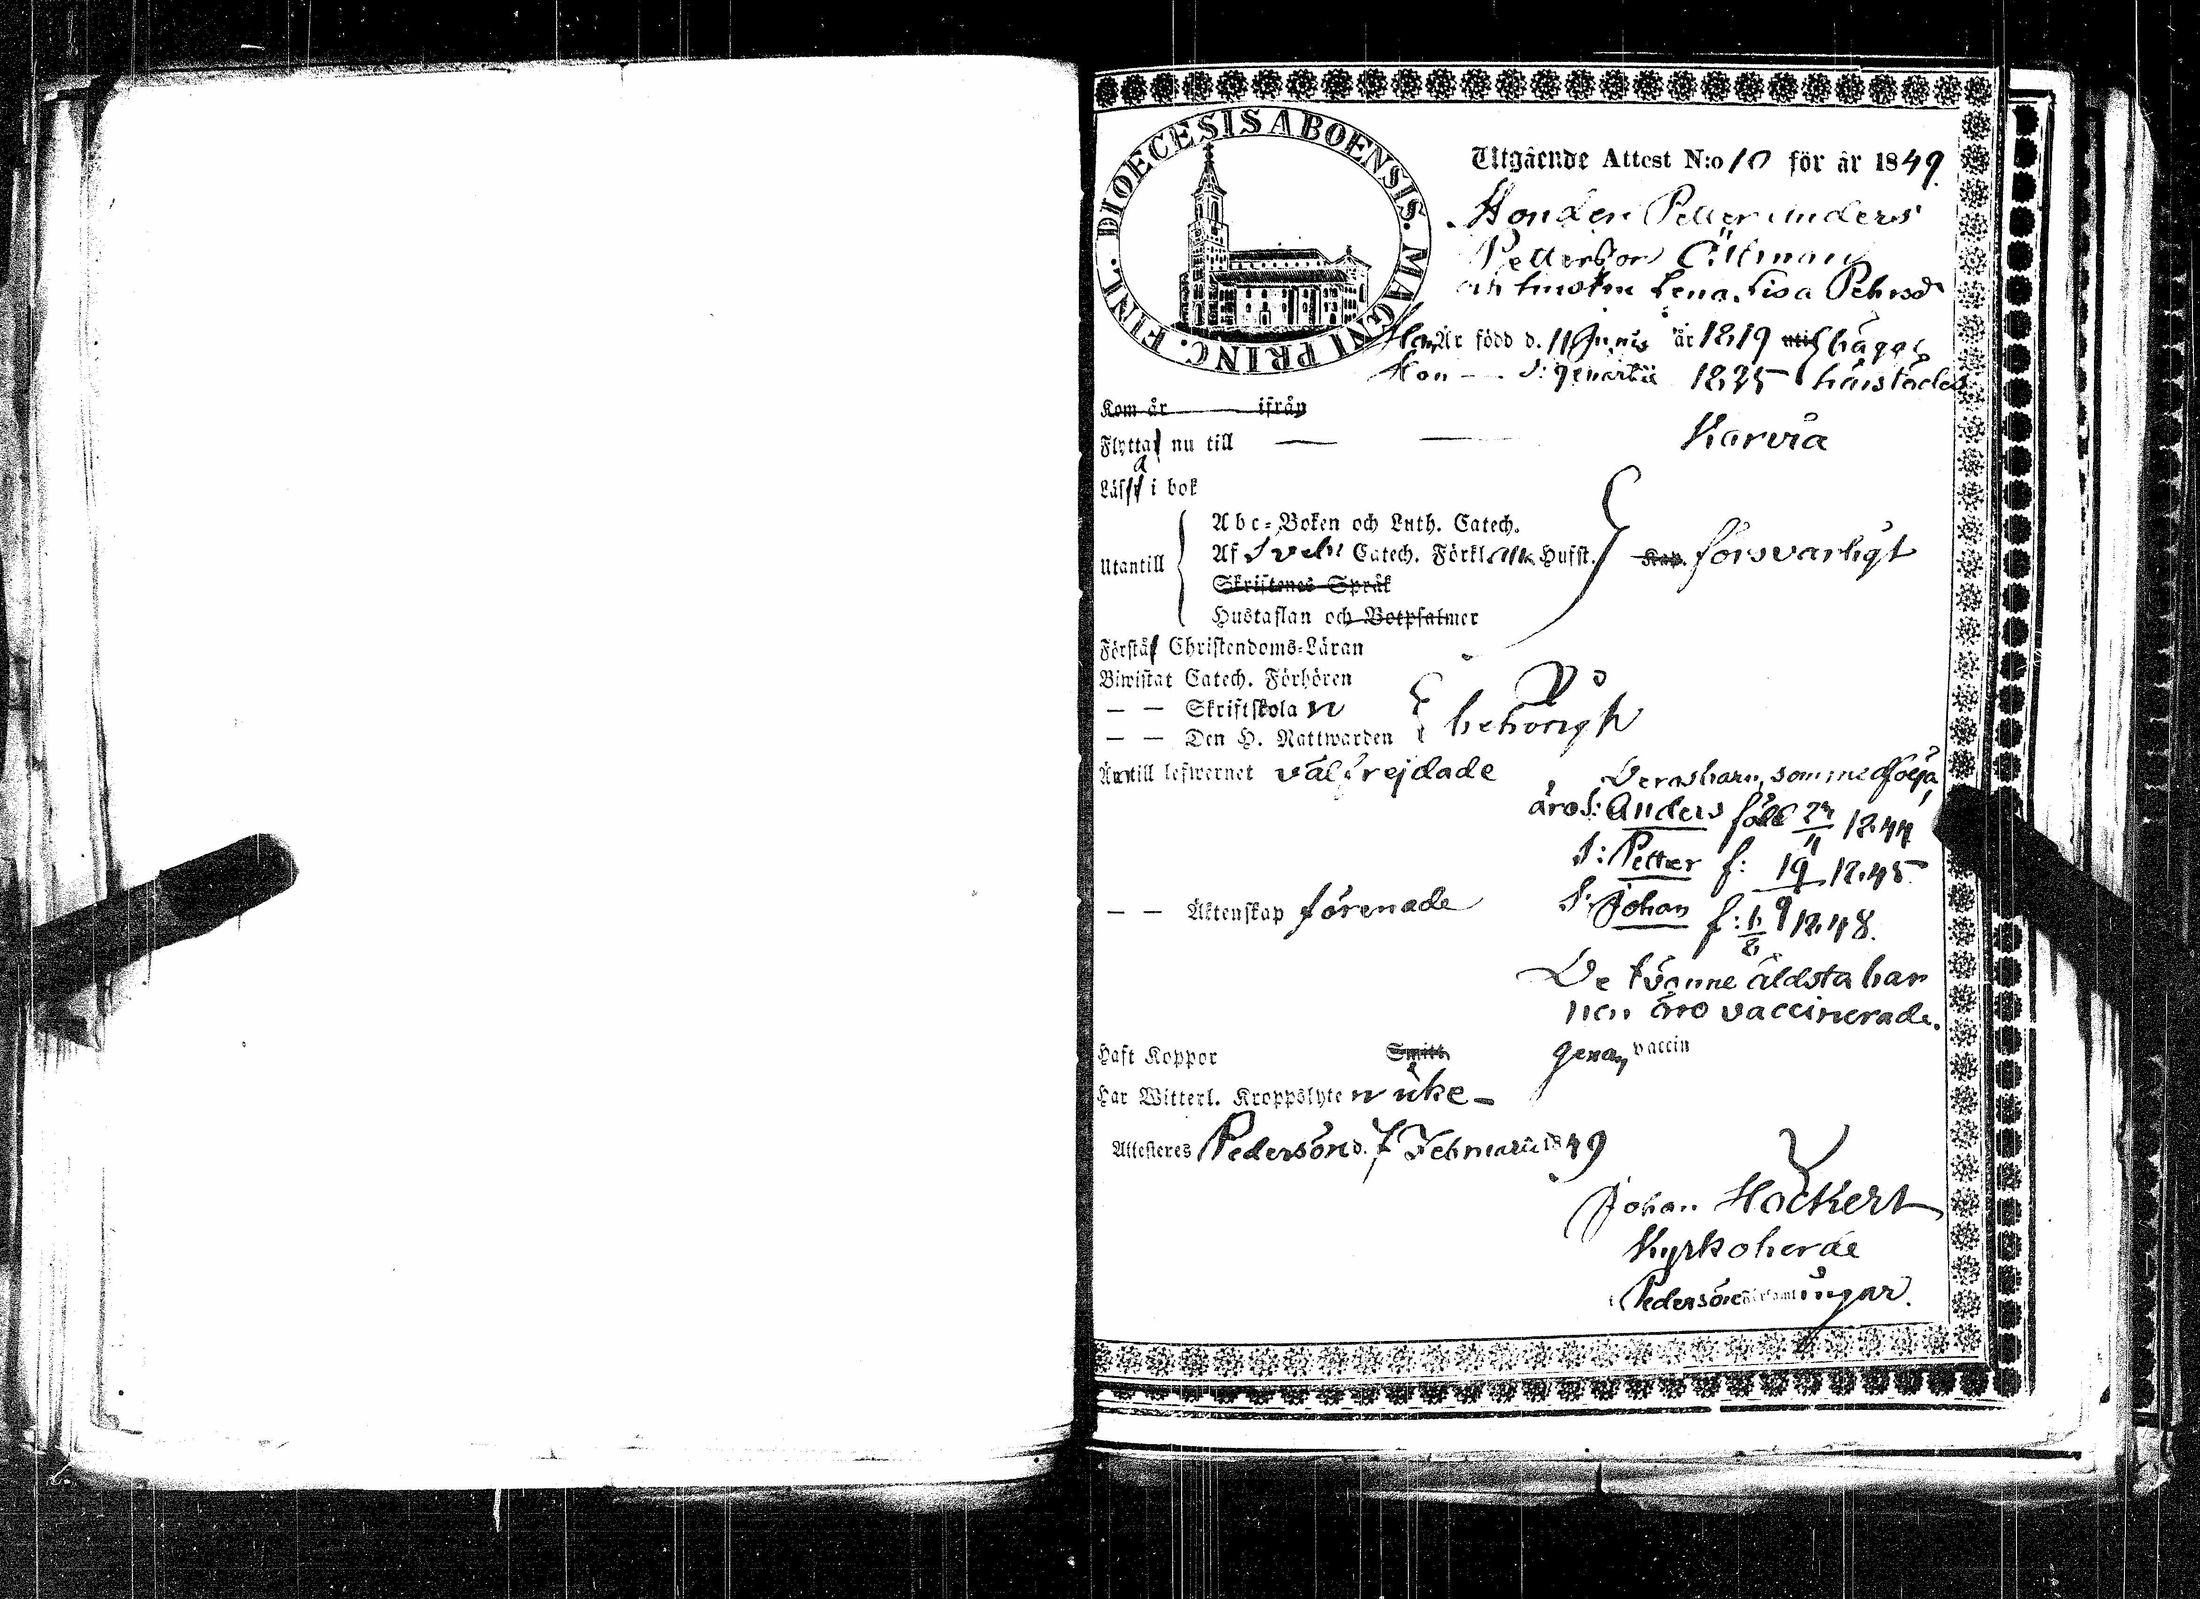 DIOECESIS ABOENSIS. MAGNI PRINC. FINL.
Utgående Attest N:o 10 för år 1849.
Bonden Petter Anders
Petterson Öllman
och hustru Lena Lisa Pehrsd
Han Är född d. 11 Junii år 1819 uti bägge
Hon — d: 9 1825 härstädes
Kom år ifrån
Flytta nu till — — Karvia
Läsa i bok
Utantill
Abc-Boken och Luth. Catech.
Af Sveb. Catech. Förkl. Hufst. Kap. försvarligt
Skriftenes Språk
Hustaflan och Botpsalmer
Förstå Christendoms-Läran
Biwistat Catech. Förhören
— — Skriftskola
— — Den H. Nattwarden behörigt
till lefwernet välfrejdade
Deras barn, som medfölja,
äro S: Anders född 1844
S: Petter f: 19 1845
— — Äktenskap förenade
S: Johan f: 1848.
De tvänne äldsta bar
nen äro vaccinerade.
Haft Koppor Smitt. genom vaccin
Har Witterl. Kroppslyte icke —
Attesteres Pedersöre d. 7 Februarii 1849
Johan Hockert
Kyrkoherde
i Pedersöre församlingar.